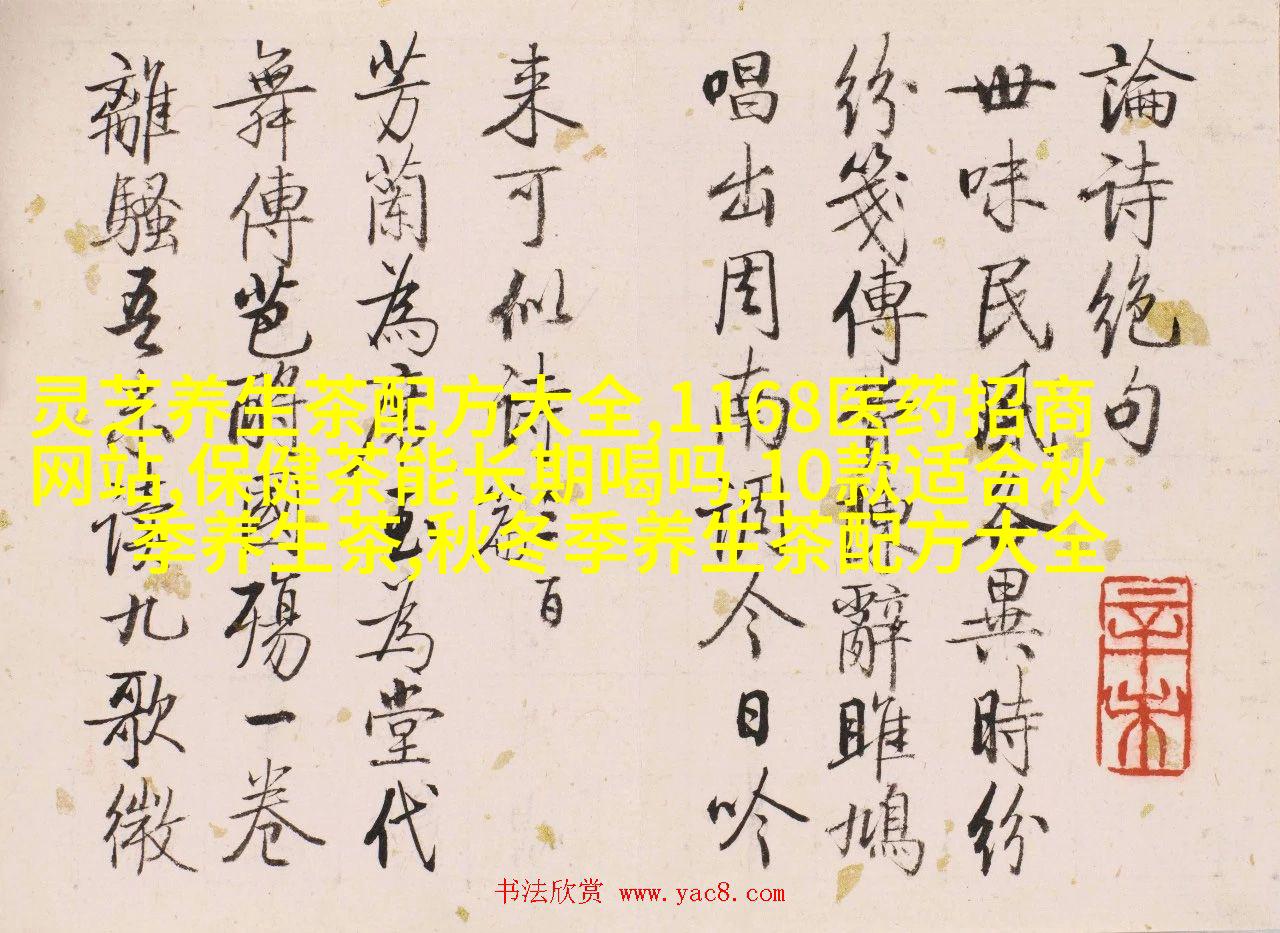 論诗絶句
世味民風今異時紛
紛箋傳辭雎鳩
唱出周南調今日吟
来可似诗百
芳蘭為席玉為堂代
舞傳芭酹國殤一卷
離騷吾讀九歌微
辛未
灵芝养生茶配方大全,1168医药招商
网站,保健茶能长期喝吗,10款适合秋
季养生茶,秋冬季养生茶配方大全
书法欣赏 www.yac8.com